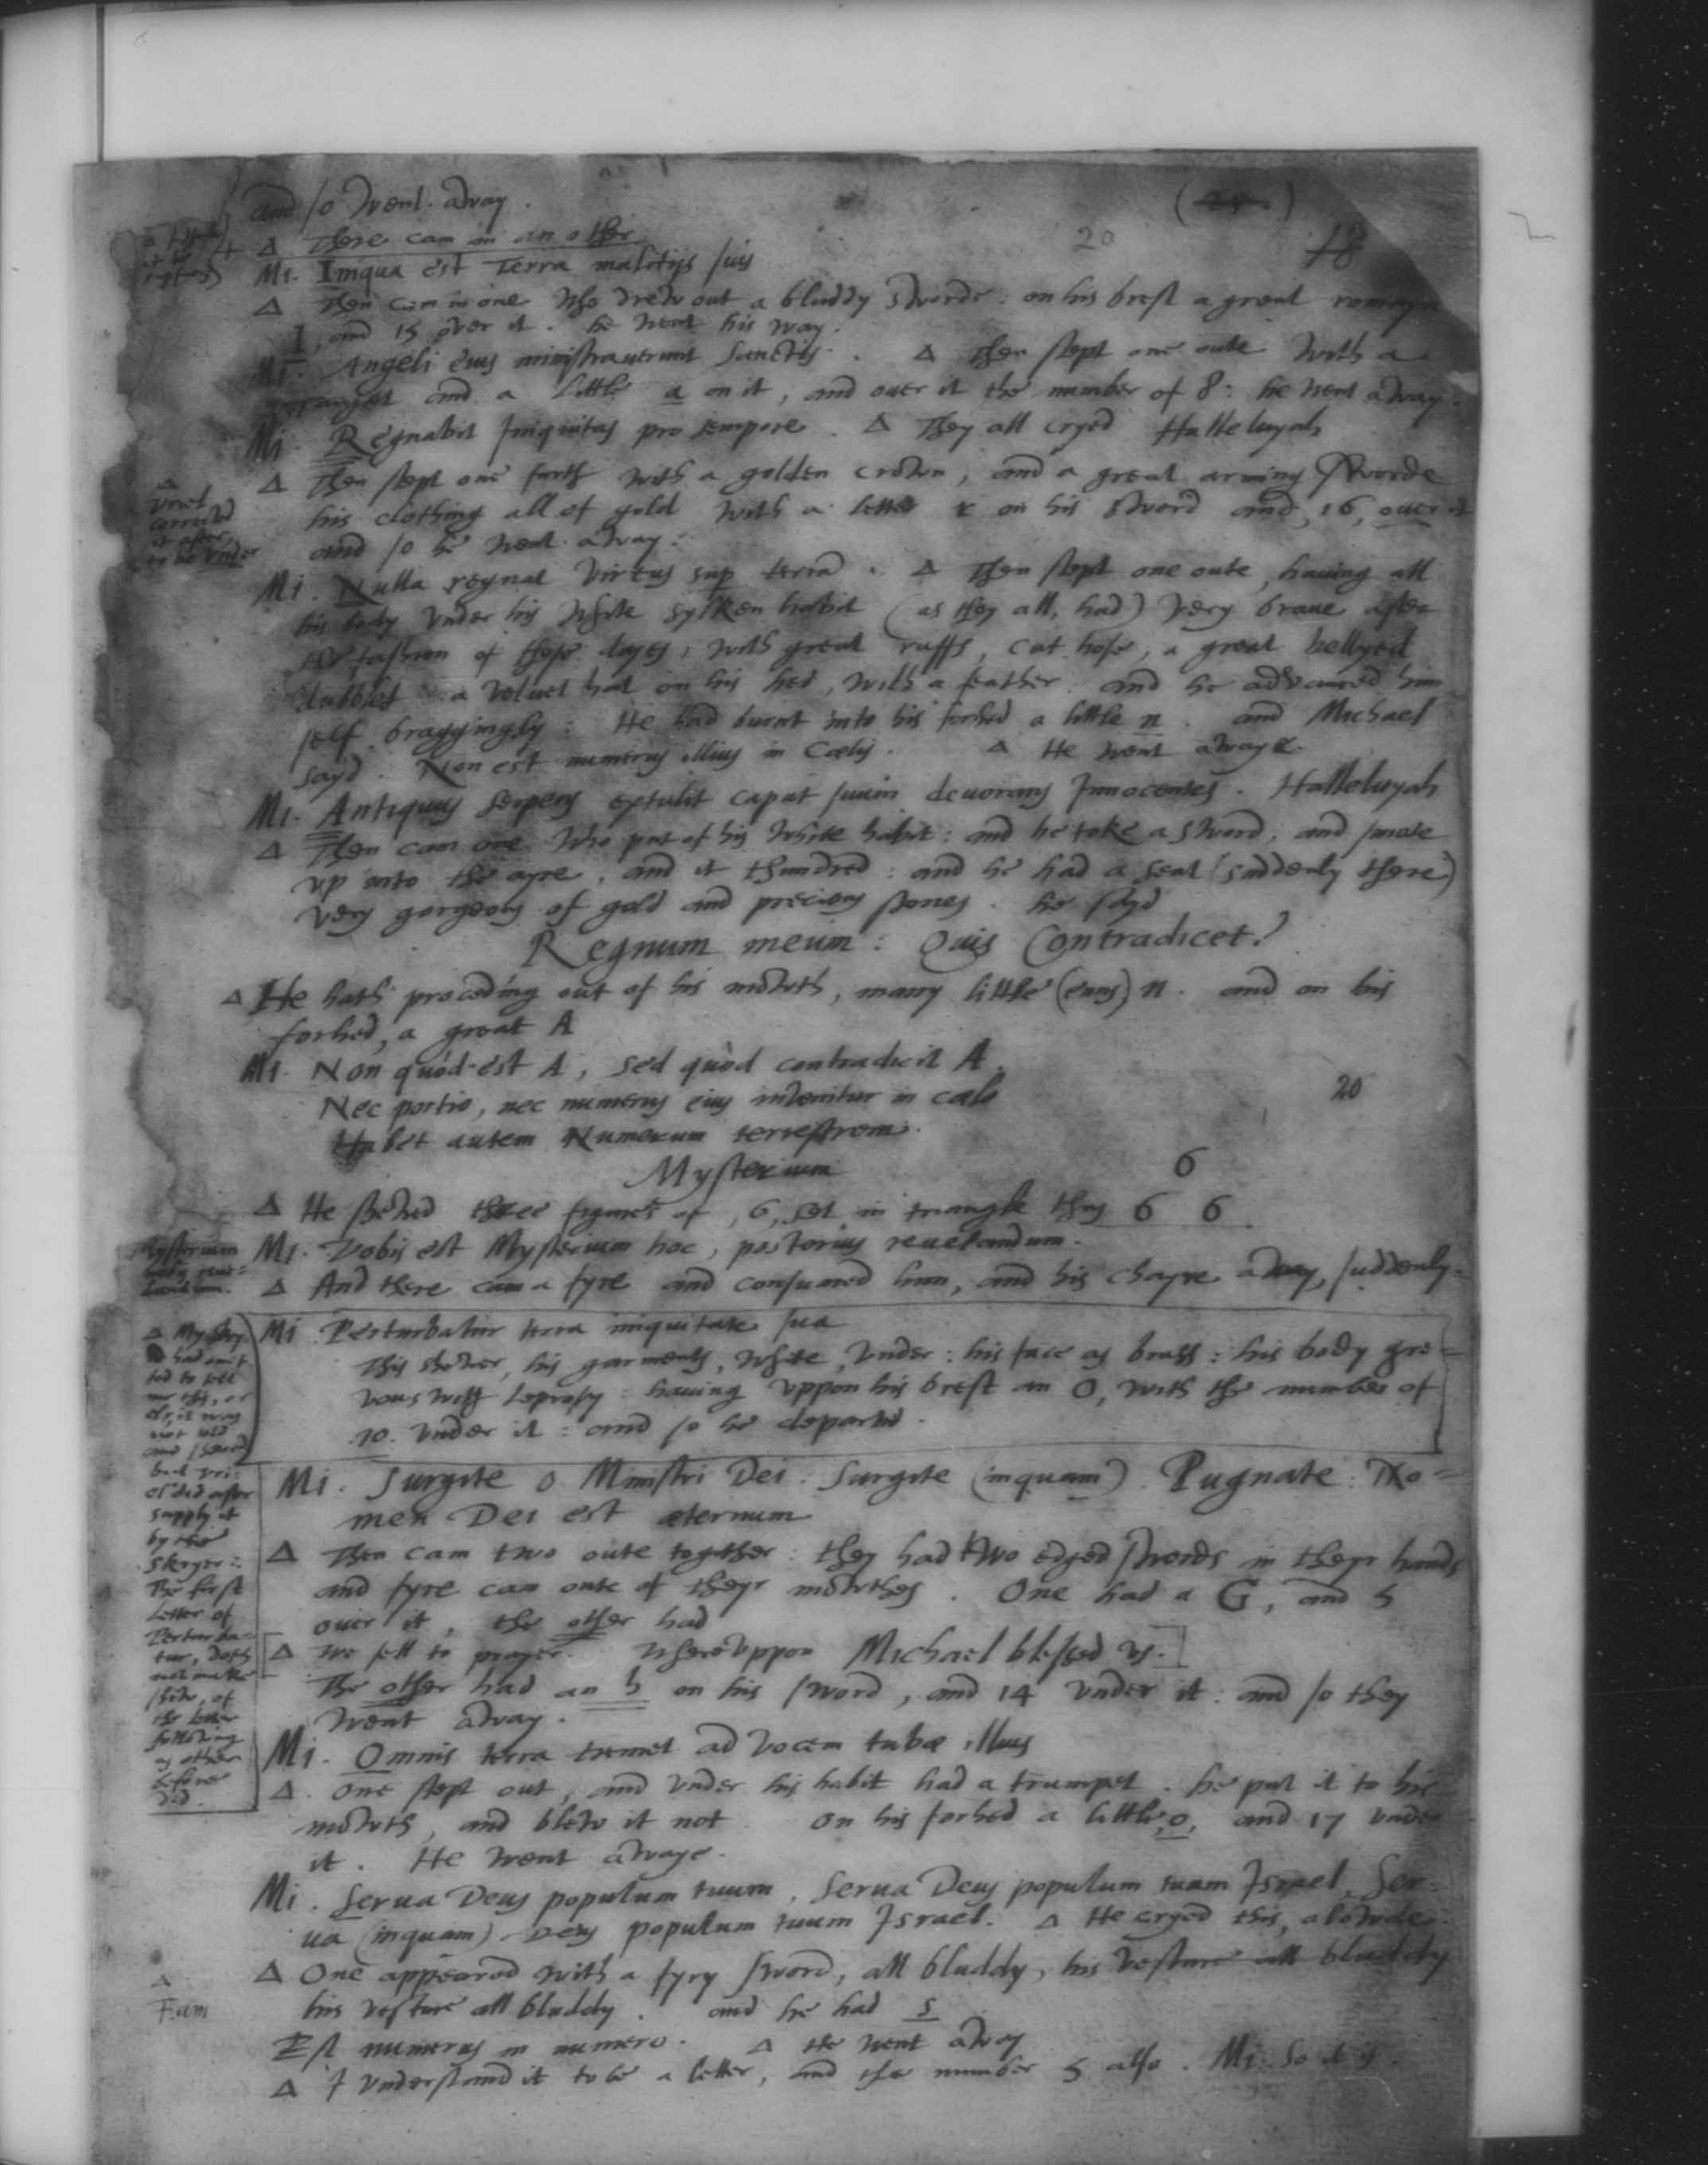 and so went away.
20
18
Δ There cam in an other
Mi. Iniqua est Terra malitijs suis
Δ Then cam in one who drew out a bluddy sworde: on his brest a great romayn
I, and 15 over it. he went his way.
Mi. Angeli eius ministrauerunt sanctis. Δ Then stept one oute with a
and a little a on it, and ouer it the number of 8: he went away.
Mi. Regnabit Iniquitas pro tempore. Δ They all cryed Halleluyah
Δ Then stept one furth with a golden crown, and a great arming sworde
his clothing all of gold with a letter r on his sword and, 16, ouer it
and so he went away.
Δ
Vriel
corrected
it after,
to be vnder
Mi. Nulla regnat virtus sup terra. Δ Then stept one oute, hauing all
his body vnder his white sylken habit (as they all, had) very braue after
the fashion of those dayes, with great ruffs, cut hose, a great bellyed
dubblet a veluet hat on his hed, with a feather: and he advanced him
self braggingly: He had burnt into his forhed a little n. and Michael
sayd. Non est numerus illius in Cælis. Δ He went awaye.
Mi. Antiquus serpens extulit caput suum deuorans Innocentes. Halleluyah
Δ Then cam one who put of his white habit: and he toke a sword, and smote
vp into the ayre, and it thundred: and he had a seal (suddenly there)
very gorgeous of gold and precious stones. he sayd
Regnum meum: Quis Contradicet?
Δ He hath proceding out of his mowth, many little (enns) n. and on his
forhed, a great A
Mi. Non quòd est A, sed quòd contradicit A.
Nec portio, nec numerus eius invenitur in cælo
20
Habet autem Numerum terrestrem.
Mysterium
6
Δ He shewed three figures of, 6, set in triangle thus 6 6
Mi. Vobis est Mysterium hoc, posterius reuelandum.
Mysterium
Δ And there cam a fyre and consumed him, and his chayre away, suddenly.
Mi. Perturbatur terra iniquitate sua
This shewer, his garments, white, vnder: his face as brass: his body gre=
vous with leprosy: hauing vppon his brest an O, with the number of
.10. vnder it: and so he departed.
Δ My skry
had omit
ted to tell
me this, or
els, it was
not told
and shewed
but vri=
el did after
supply it
by the
skryer:
The first
letter of
Perturba=
tur, doth
not make
shew, of
the letter
following
as other
before
did.
Mi. Surgite o Ministri Dei: Surgite (inquam) Pugnate: No=
men Dei est æternum
Δ Then cam two oute togither: they had two edged swords in theyr hands
and fyre cam oute of theyr mowthes. One had a G, and 5
over it, the other had
[Δ we fell to prayer. whereuppon Michael blessed vs.]
The other had an h on his sword, and 14 vnder it: and so they
went away.
Mi. Omnis terra tremet ad vocem tubæ illius
Δ. One stept out, and vnder his habit had a trumpet. he put it to his
mowth, and blew it not. on his forhed a little, o, and 17 vnder
it. He went awaye.
Mi. Serua Deus populum tuum, Serua Deus populum tuum Israel, Ser=
ua (inquam) Deus populum tuum Israel. Δ He cryed this, alowde.
Δ One appeared with a fyry sword, all bluddy, his vesture all bluddy
his vesture all bluddy. and he had s
Est numerus in numero. Δ He went away
Δ I vnderstand it to be a letter, and the number 5 also. Mi. So it is.